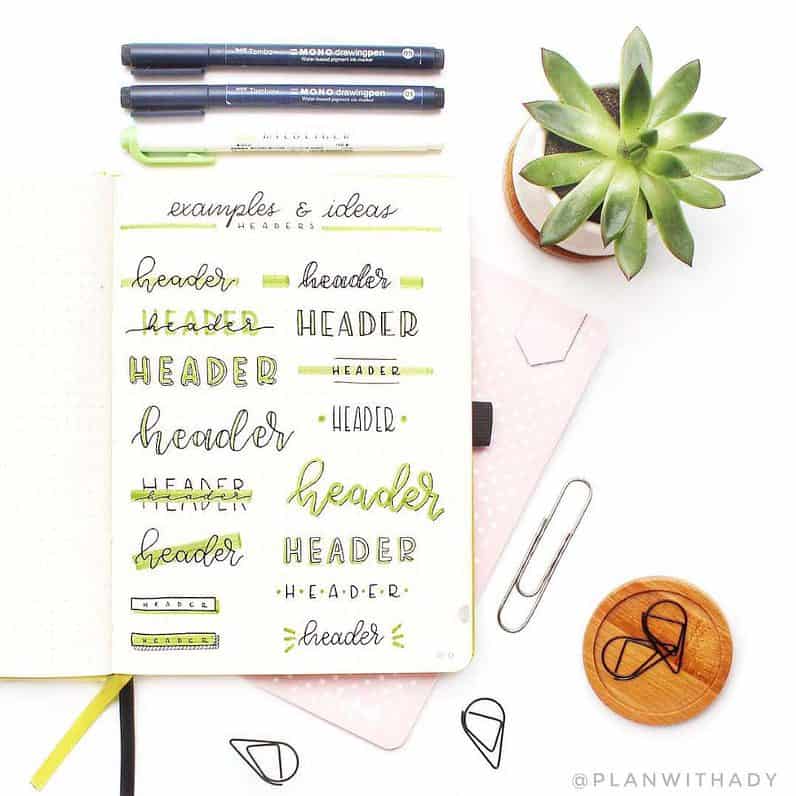 Tombow MONO drawingpen 05
Water-based pigment ink marker
Tombow MONO drawingpen 01
Water-based pigment ink marker
MILDLINER
examples & ideas
HEADERS
header header
HEADER
header HEADER
HEADER HEADER
header HEADER
HEADER
header header
header HEADER
HEADER H·E·A·D·E·R
HEADER header
@PLANWITHADY